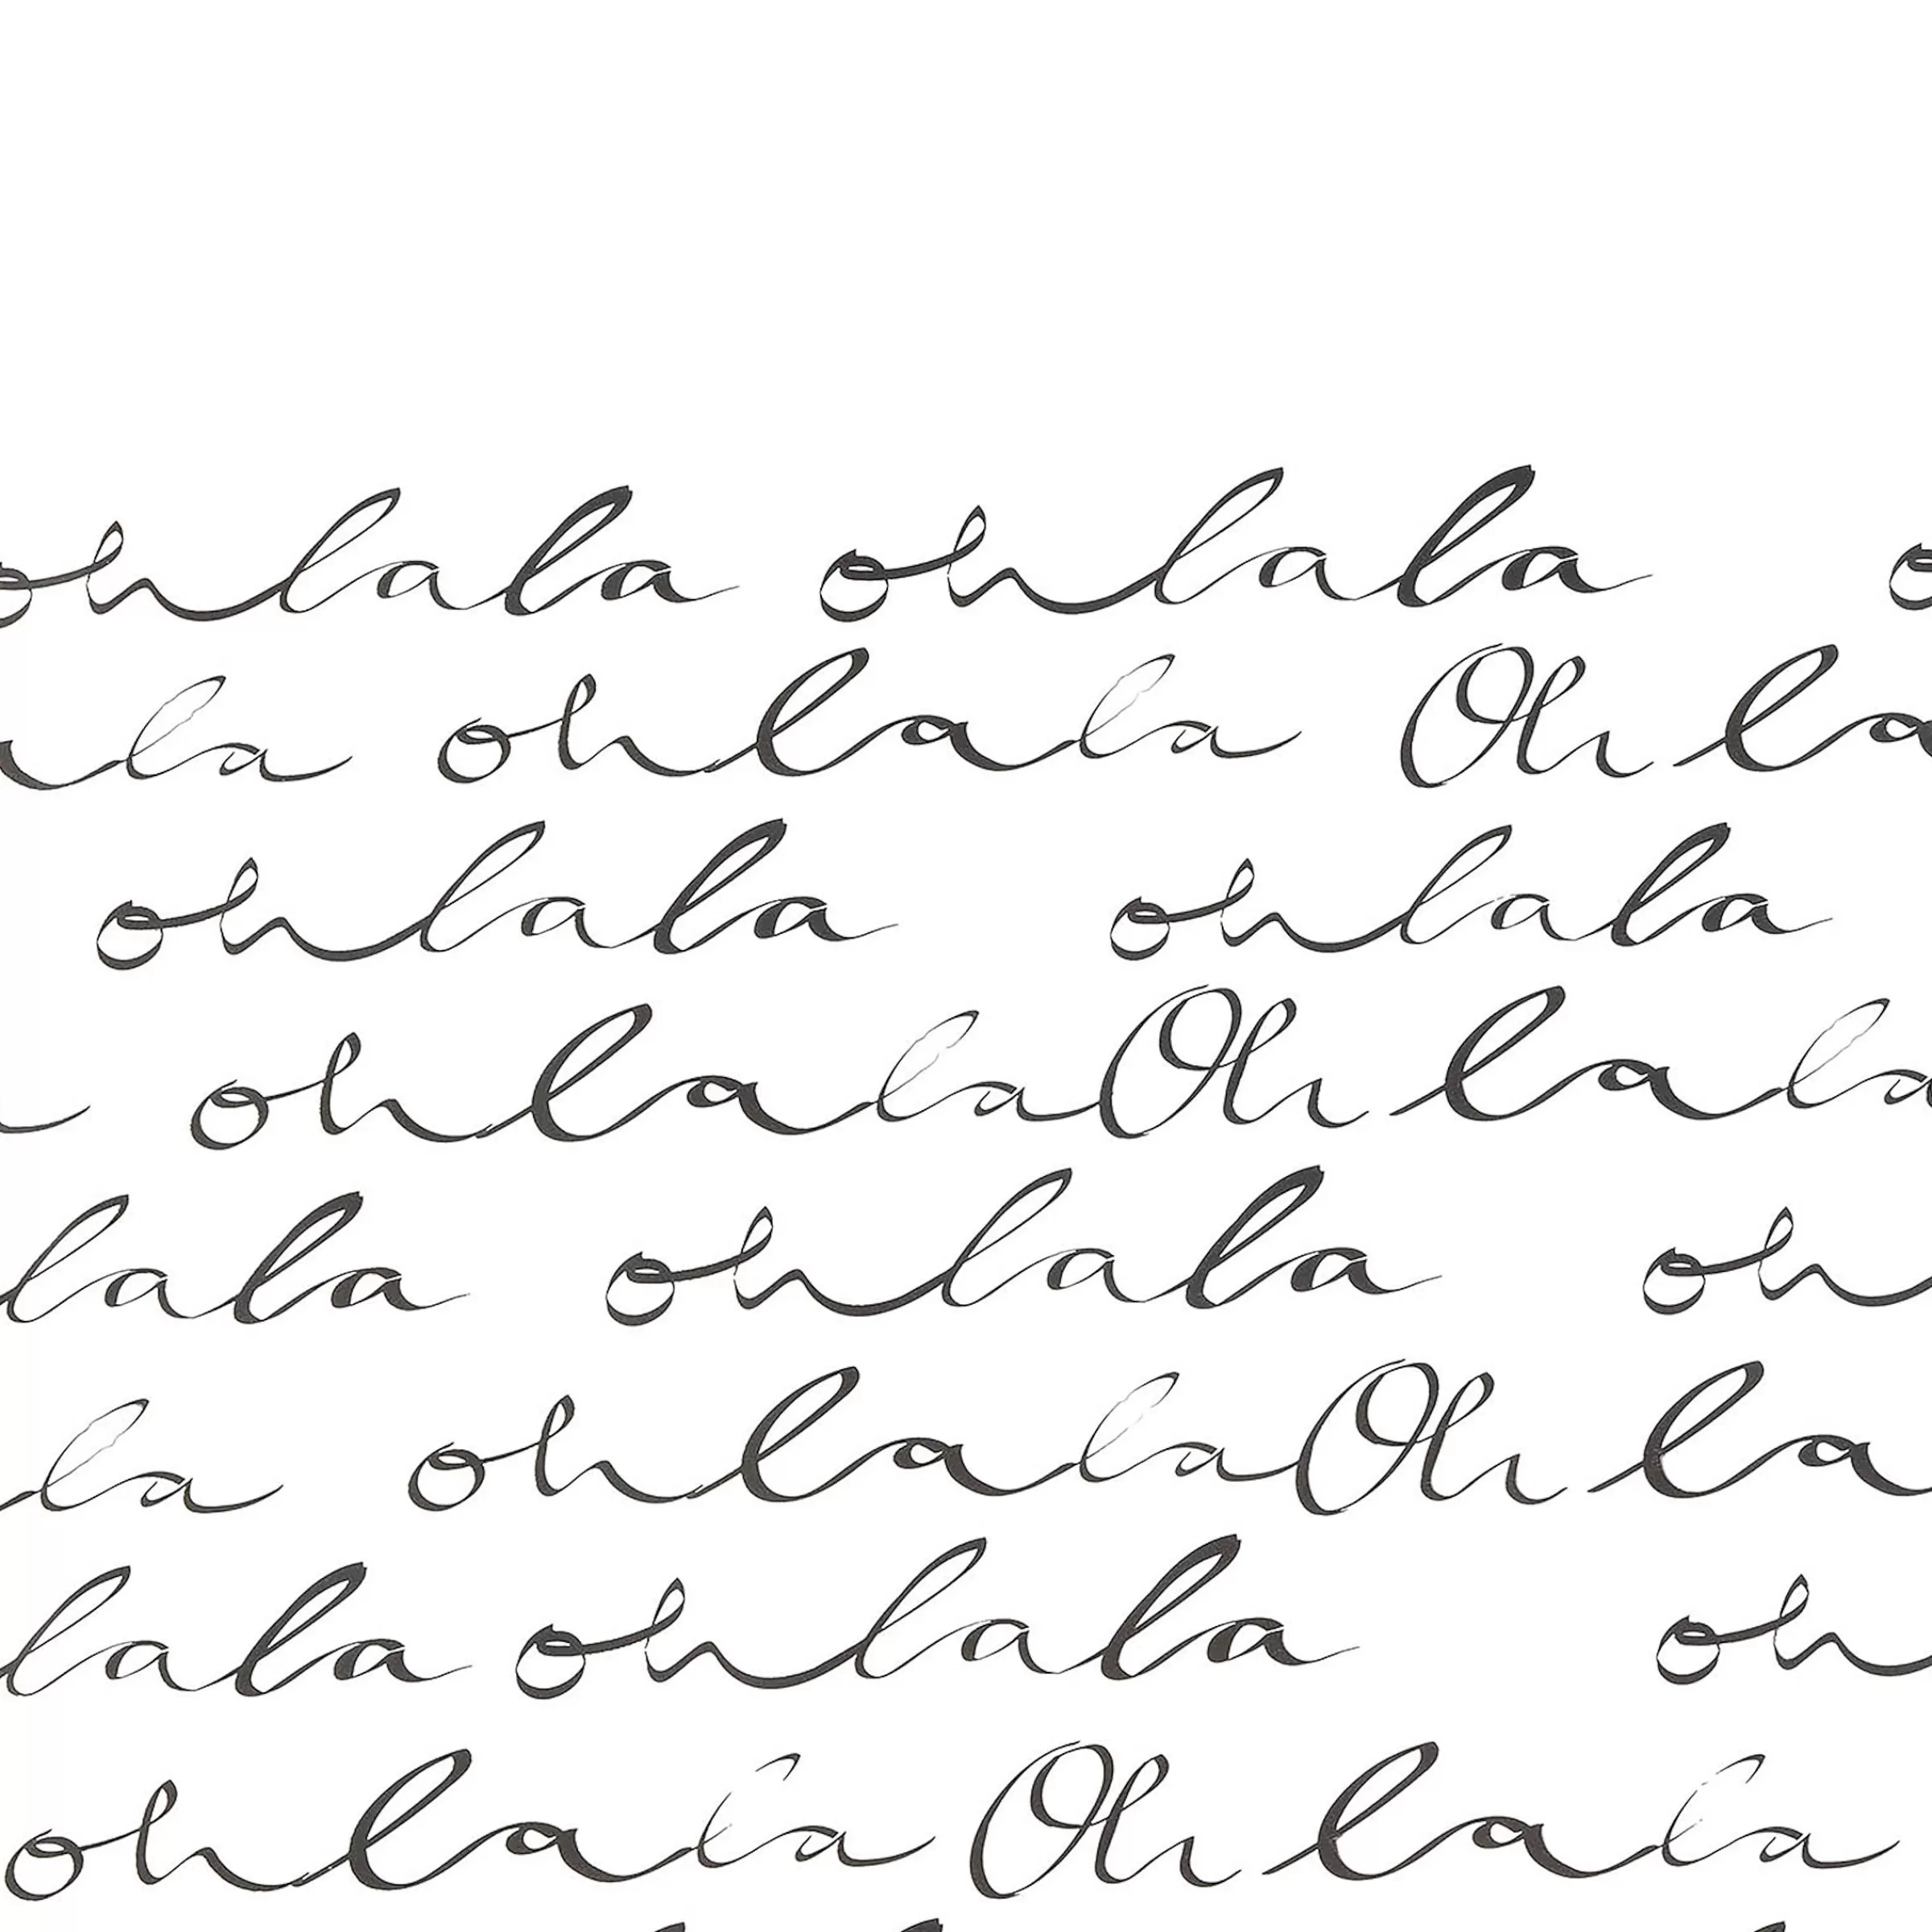 ohlala ohlala o
la ohlala Oh la
ohlala ohlala
ohlala Oh lala
lala ohlala oh
la ohlala Oh la
lala ohlala oh
ohlala Oh lala